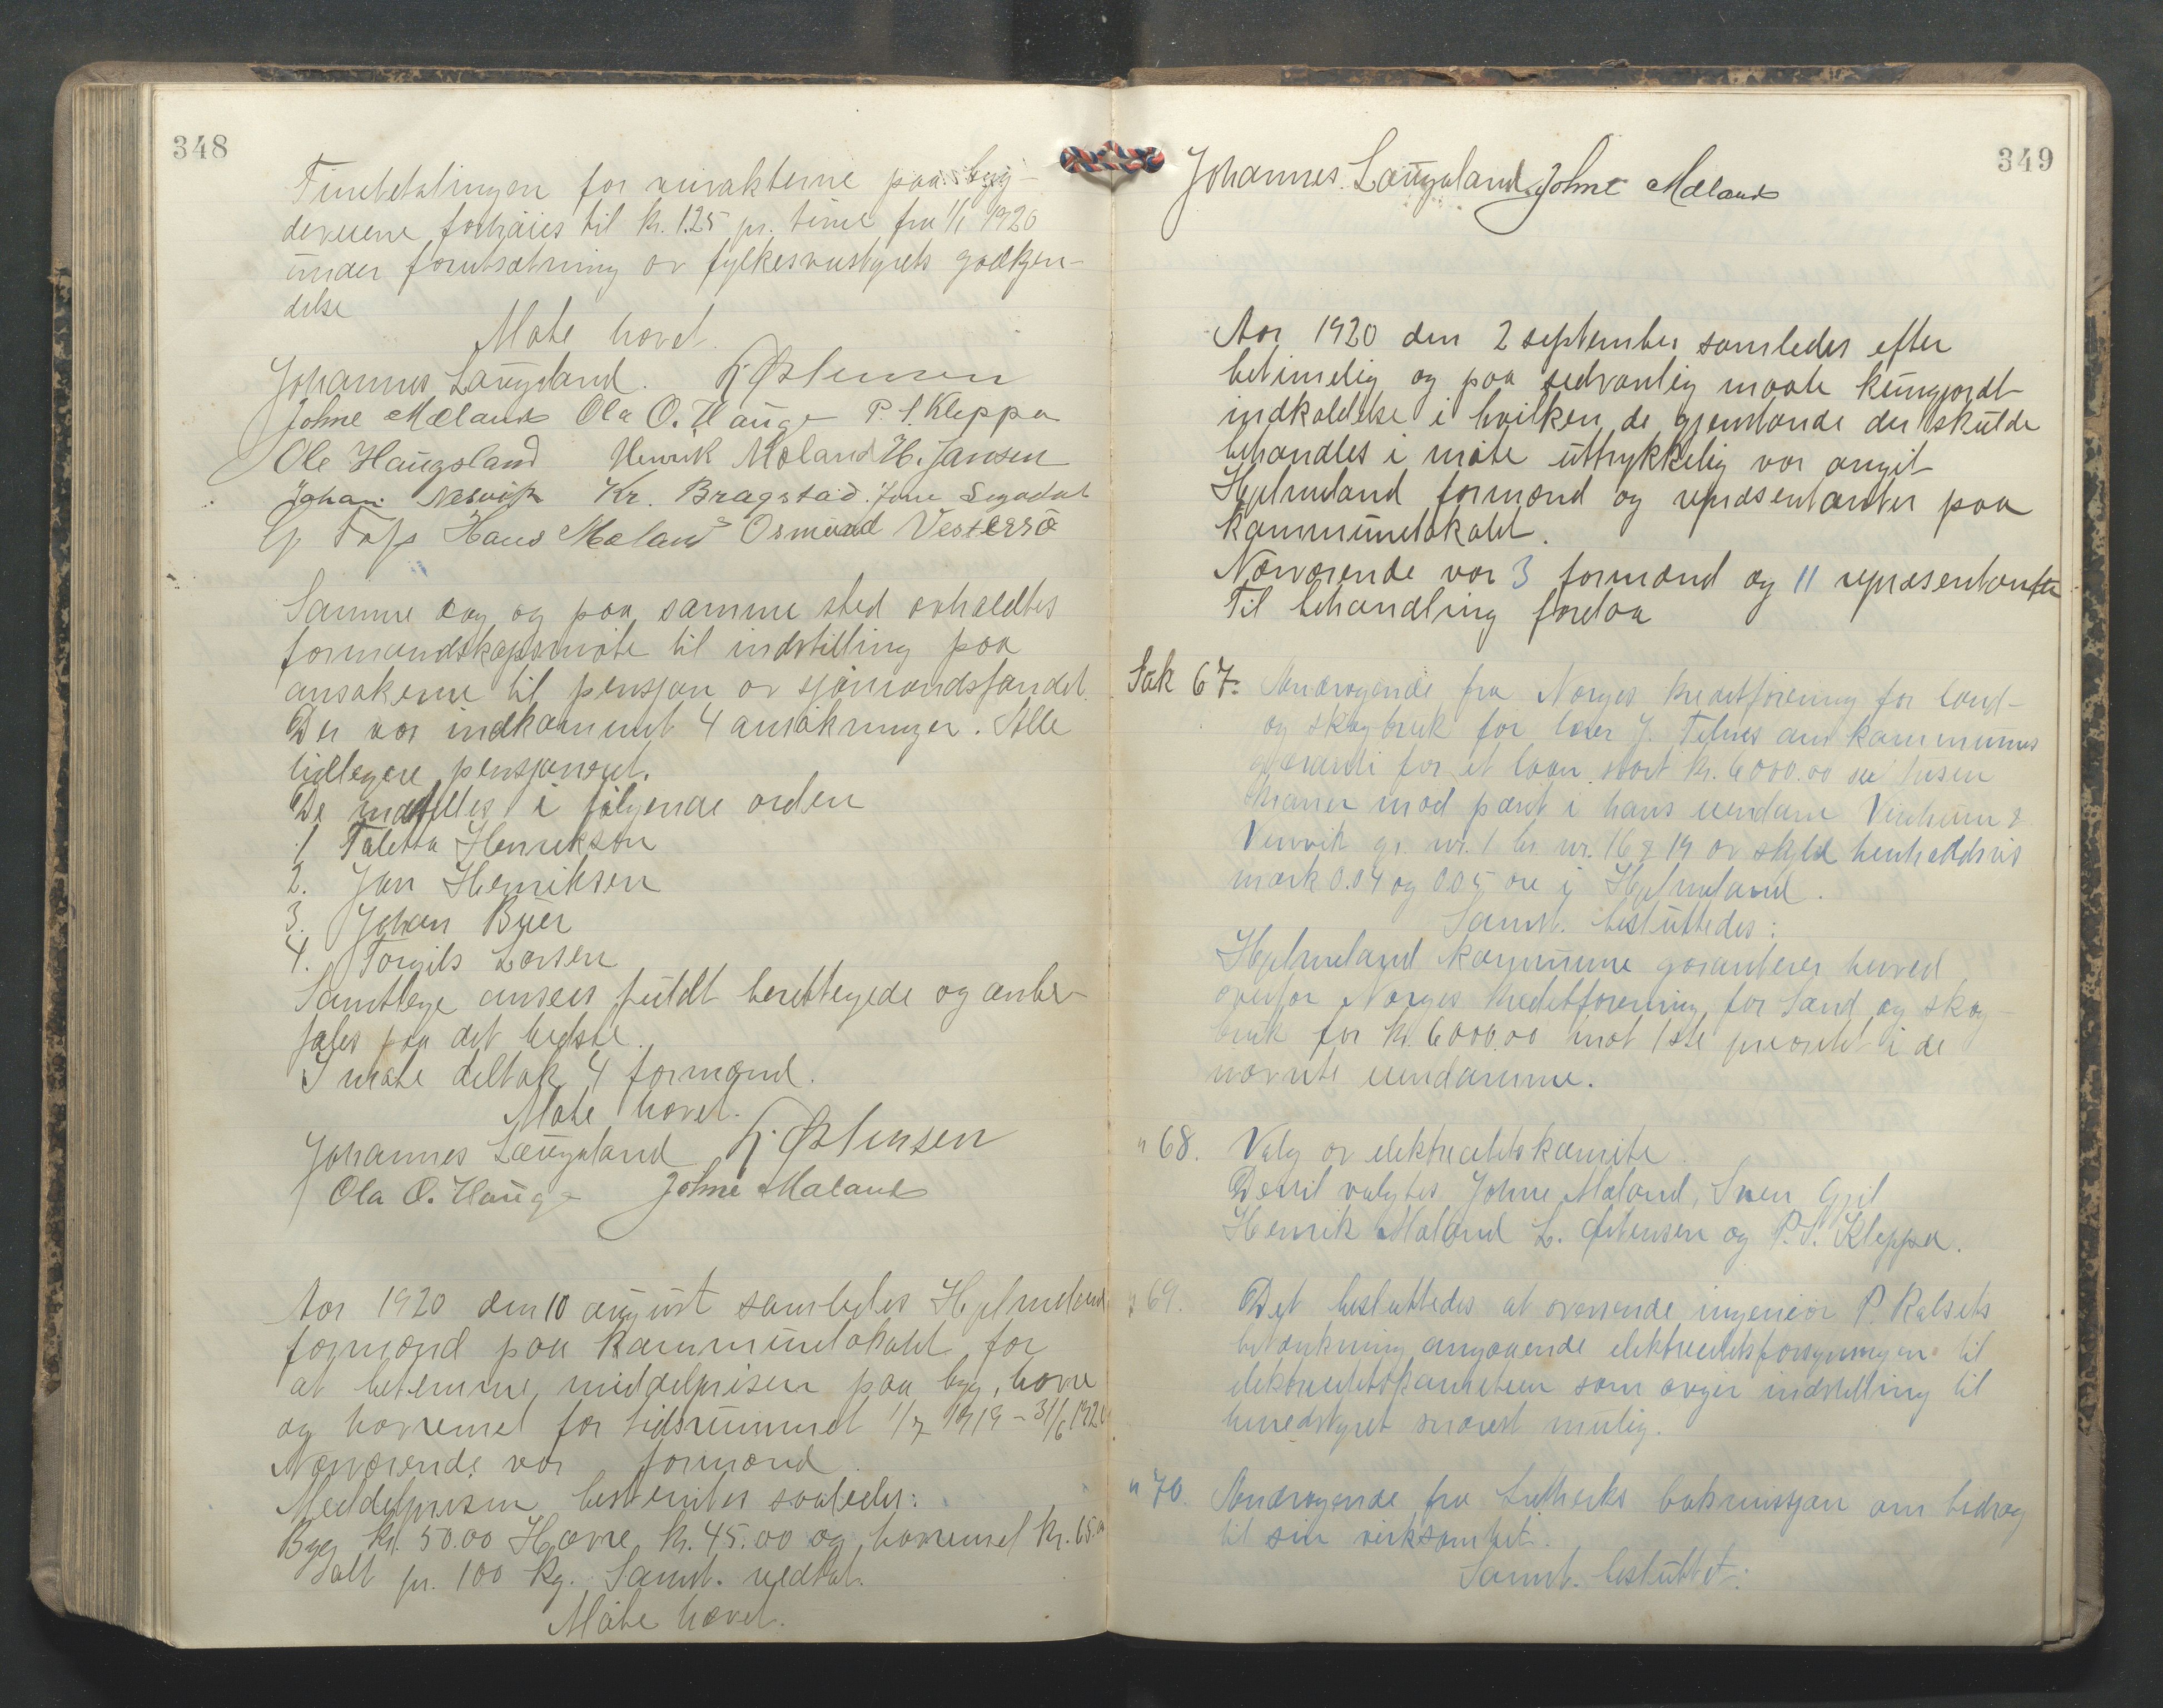 348
Timebetalingen for veivakterne paa byg-
deveiene forhøies til kr. 1.25 pr. time fra 1/1 1920
under forutsætning av fylkesveistyrets godkjen-
delse
Møte hævet.
Johannes Laugaland. L. Østensen
Johne Mæland Ola O. Hauge P. S. Kleppa
Ole Haugsland Henrik Mæland H. Jansen
Johan Nesvik Kr. Bragstad. Jone Segadal
Hans Mæland Osmund Vestersø
Samme dag og paa samme sted avholdtes
formandskapsmøte til indstilling paa
ansøkerne til pensjon av sjømandsfondet.
Der var indkommet 4 ansøkninger. Alle
tidligere pensjoneret.
De indstilles i følgende orden
1 Taletta Henriksen
2. Jan Henriksen
3. Johan Buer
4. Torgils Larsen
Samtlige ansees fuldt berettigede og anbe-
fales paa det bedste.
I møte deltok 4 formænd.
Møte hævet.
Johannes Laugaland L. Østensen
Ola O. Hauge Johne Mæland
Aar 1920 den 10 august samledes Hjelmeland
formænd paa kommunelokalet for
at bestemme middelprisen paa byg, havre
og havremel for tidsrummet 1/7 1919 - 31/6 1920.
Nærværende var formænd.
Middelprisen bestemtes saaledes:
Byg kr. 50.00 Havre kr. 45.00 og havremel kr. 65.00
alt pr. 100 kg. Samst. vedtat.
Møte hævet.
349
Johannes Laugaland Johne Mæland
Aar 1920 den 2 september samledes efter
betimelig og paa sedvanlig maate kungjordt
indkaldelse i hvilken de gjenstande der skulde
behandles i møte uttrykkelig var angit
Hjelmeland formænd og representanter paa
kommunelokalet.
Nærværende var 3 formænd og 11 representanter
Til behandling forelaa
Sak 67. Andragende fra Norges kreditforening for land-
og skogbruk for lærer J. Tytnes om kommunens
garanti for et laan stort kr. 6000.00 sex tusen
kroner mod pant i hans eiendom &
gr. nr. 1 br. nr. 16 & 19 av skyld henholdsvis
mark 0.04 og 0.05 øre i Hjelmeland.
Samst. besluttedes:
Hjelmeland kommune garanterer herved
overfor Norges kreditforening for land og skog-
bruk for kr. 6000.00 mot 1ste prioritet i de
nævnte eiendomme.
" 68. Valg av elektricitetskomite.
Dertil valgtes Johne Mæland, Sven Gjil
Henrik Mæland L. Østensen og P. S. Kleppa.
" 69. Det besluttedes at oversende ingeniør P. Kalsets
betænkning angaaende elektricitetsforsyningen til
elektricitetskomiteen som avgir indstilling til
herredstyret snarest mulig.
" 70. Andragende fra Lutherks bokmissjon om bidrag
til sin virksomhet.
Samst. besluttet: